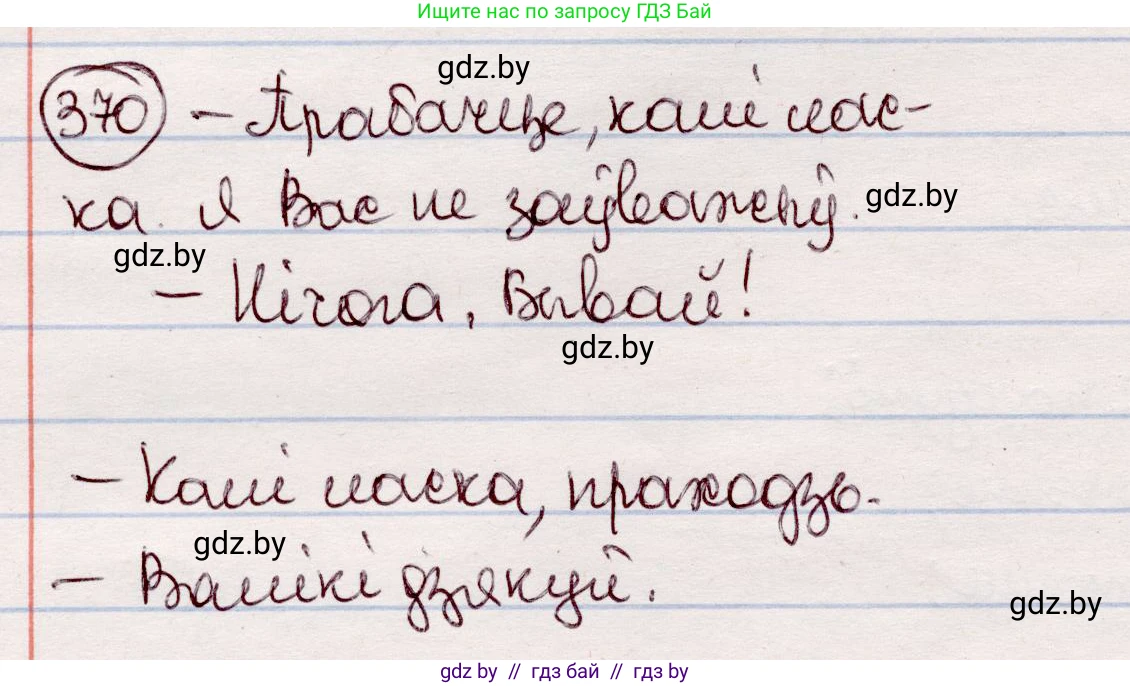 Ищите нас по запросу ГДЗ Бай
gdz.by
370 – Прабачце, калі лас-
ка. Я Вас не заўважыў. gdz.by
gdz.by
– Нічога, Бывай!
gdz.by
– Калі ласка, праходзь.
gdz.by
– Вялікі дзякуй.
gdz.by
gdz by // гдз бай // гдз by